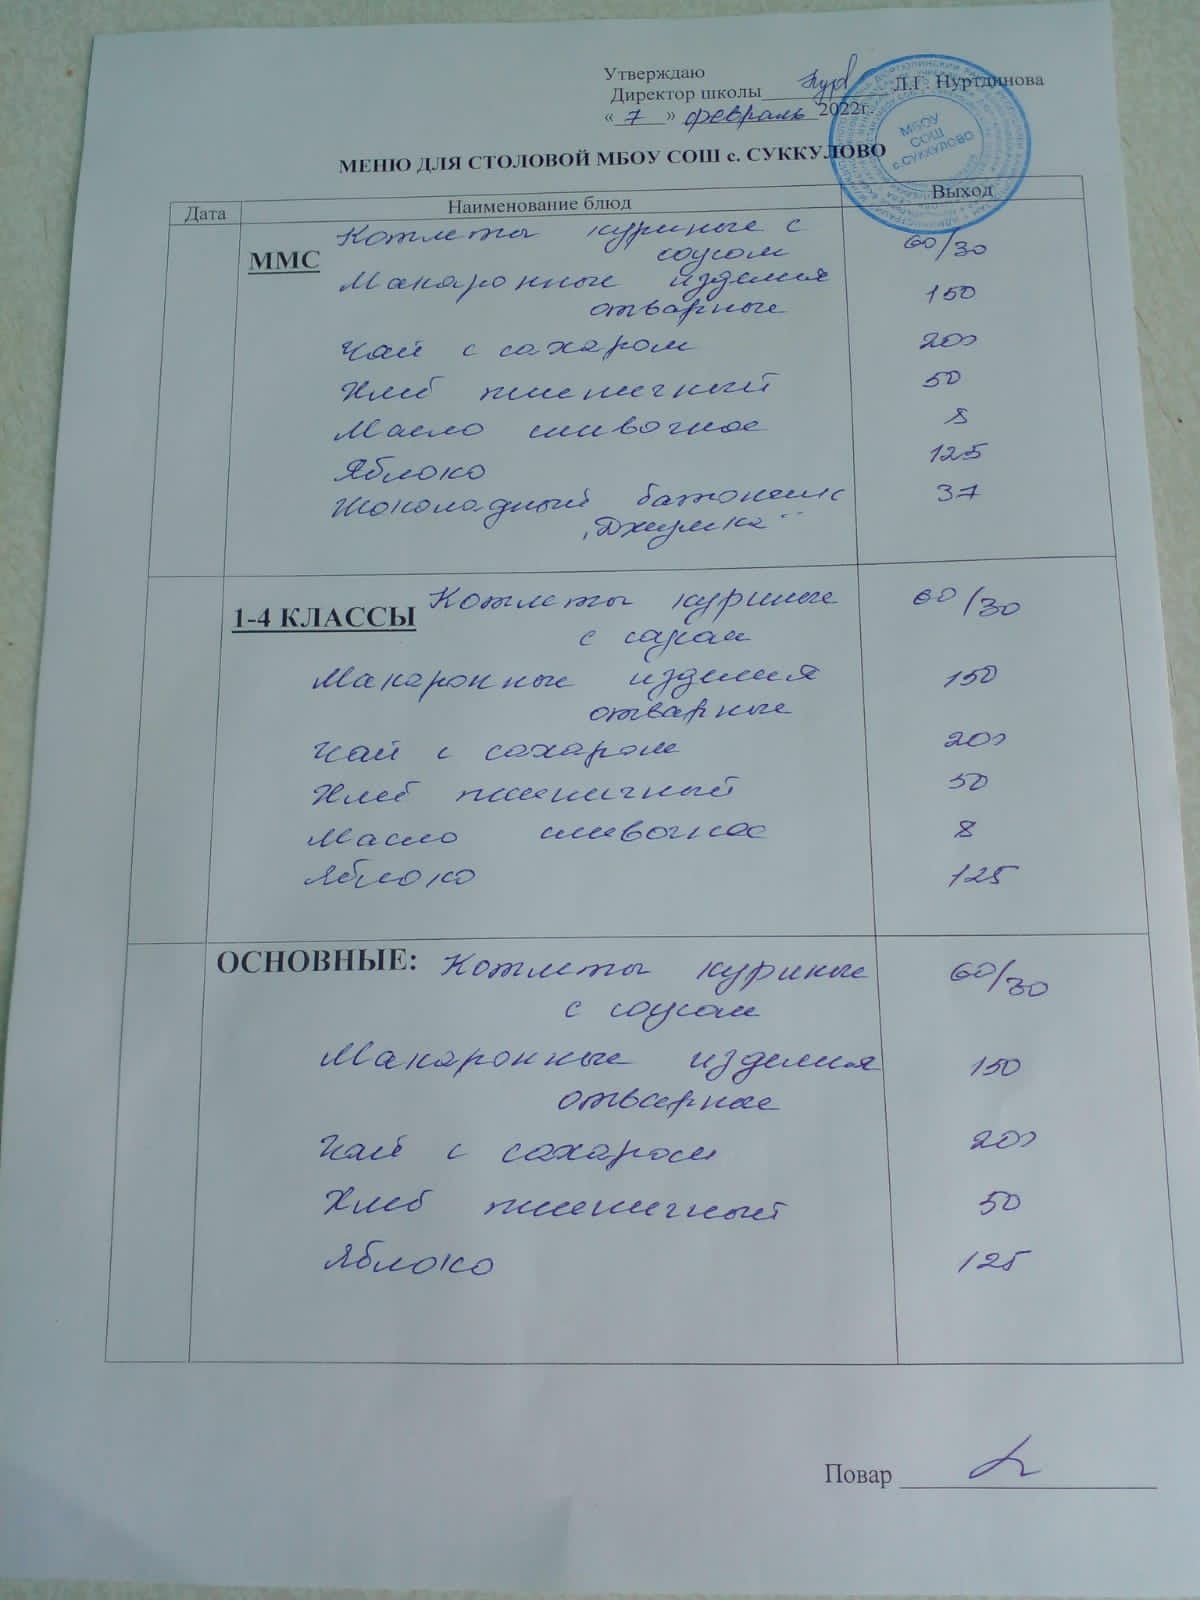 Утверждаю
Директор школы Л.Г. Нуртдинова
« 7 » февраль 2022г.
МБОУ
СОШ
с.СУККУЛОВО
МЕНЮ ДЛЯ СТОЛОВОЙ МБОУ СОШ с. СУККУЛОВО
Дата Наименование блюд Выход
ММС Котлеты куриные с 60/30
соусом
Макаронные изделия 150
отварные
Чай с сахаром 200
Хлеб пшеничный 50
Масло сливочное 8
Яблоко 125
Шоколадный батончик 37
„Джумка“
1-4 КЛАССЫ Котлеты куриные 60/30
с соусом
Макаронные изделия 150
отварные
Чай с сахаром 200
Хлеб пшеничный 50
Масло сливочное 8
Яблоко 125
ОСНОВНЫЕ: Котлеты куриные 60/30
с соусом
Макаронные изделия 150
отварные
Чай с сахаром 200
Хлеб пшеничный 50
Яблоко 125
Повар